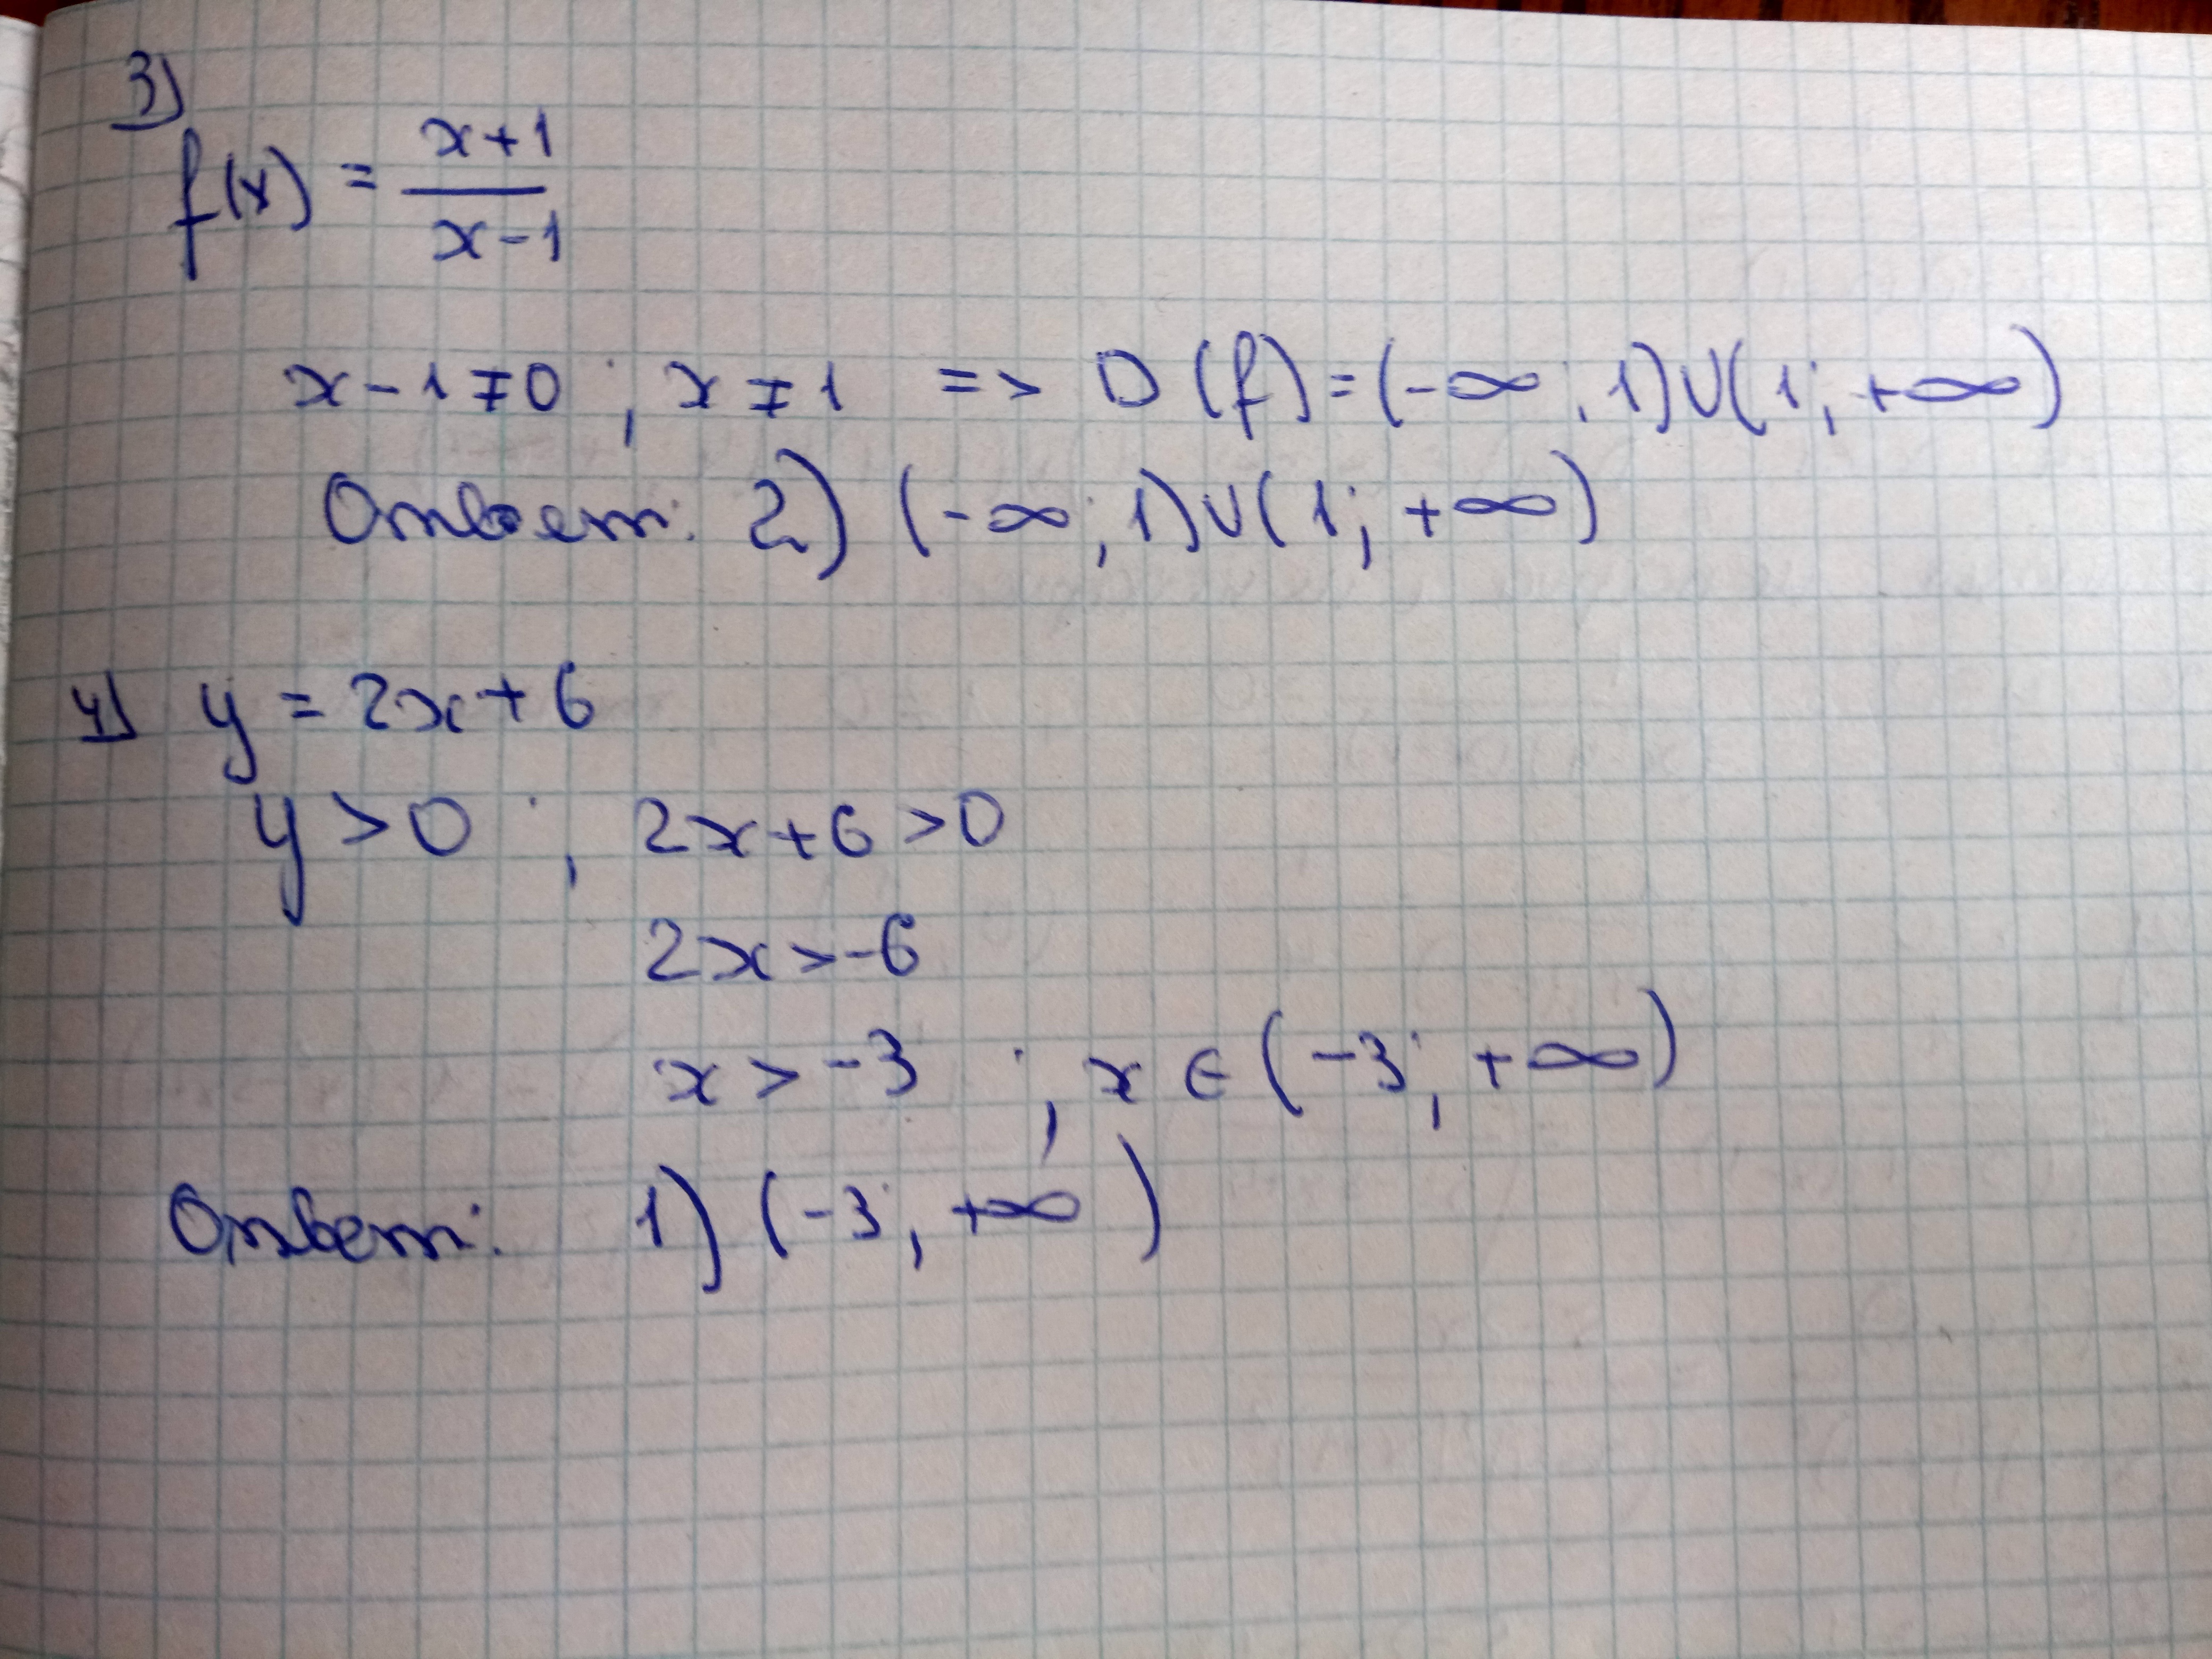 3)
f(x) = x+1
x-1
x-1≠0 ; x≠1 => D(f)=(-∞;1)∪(1;+∞)
Ответ: 2) (-∞;1)∪(1;+∞)
4) y = 2x+6
y>0 ; 2x+6>0
2x>-6
x>-3 ; x∈(-3;+∞)
Ответ: 1) (-3;+∞)